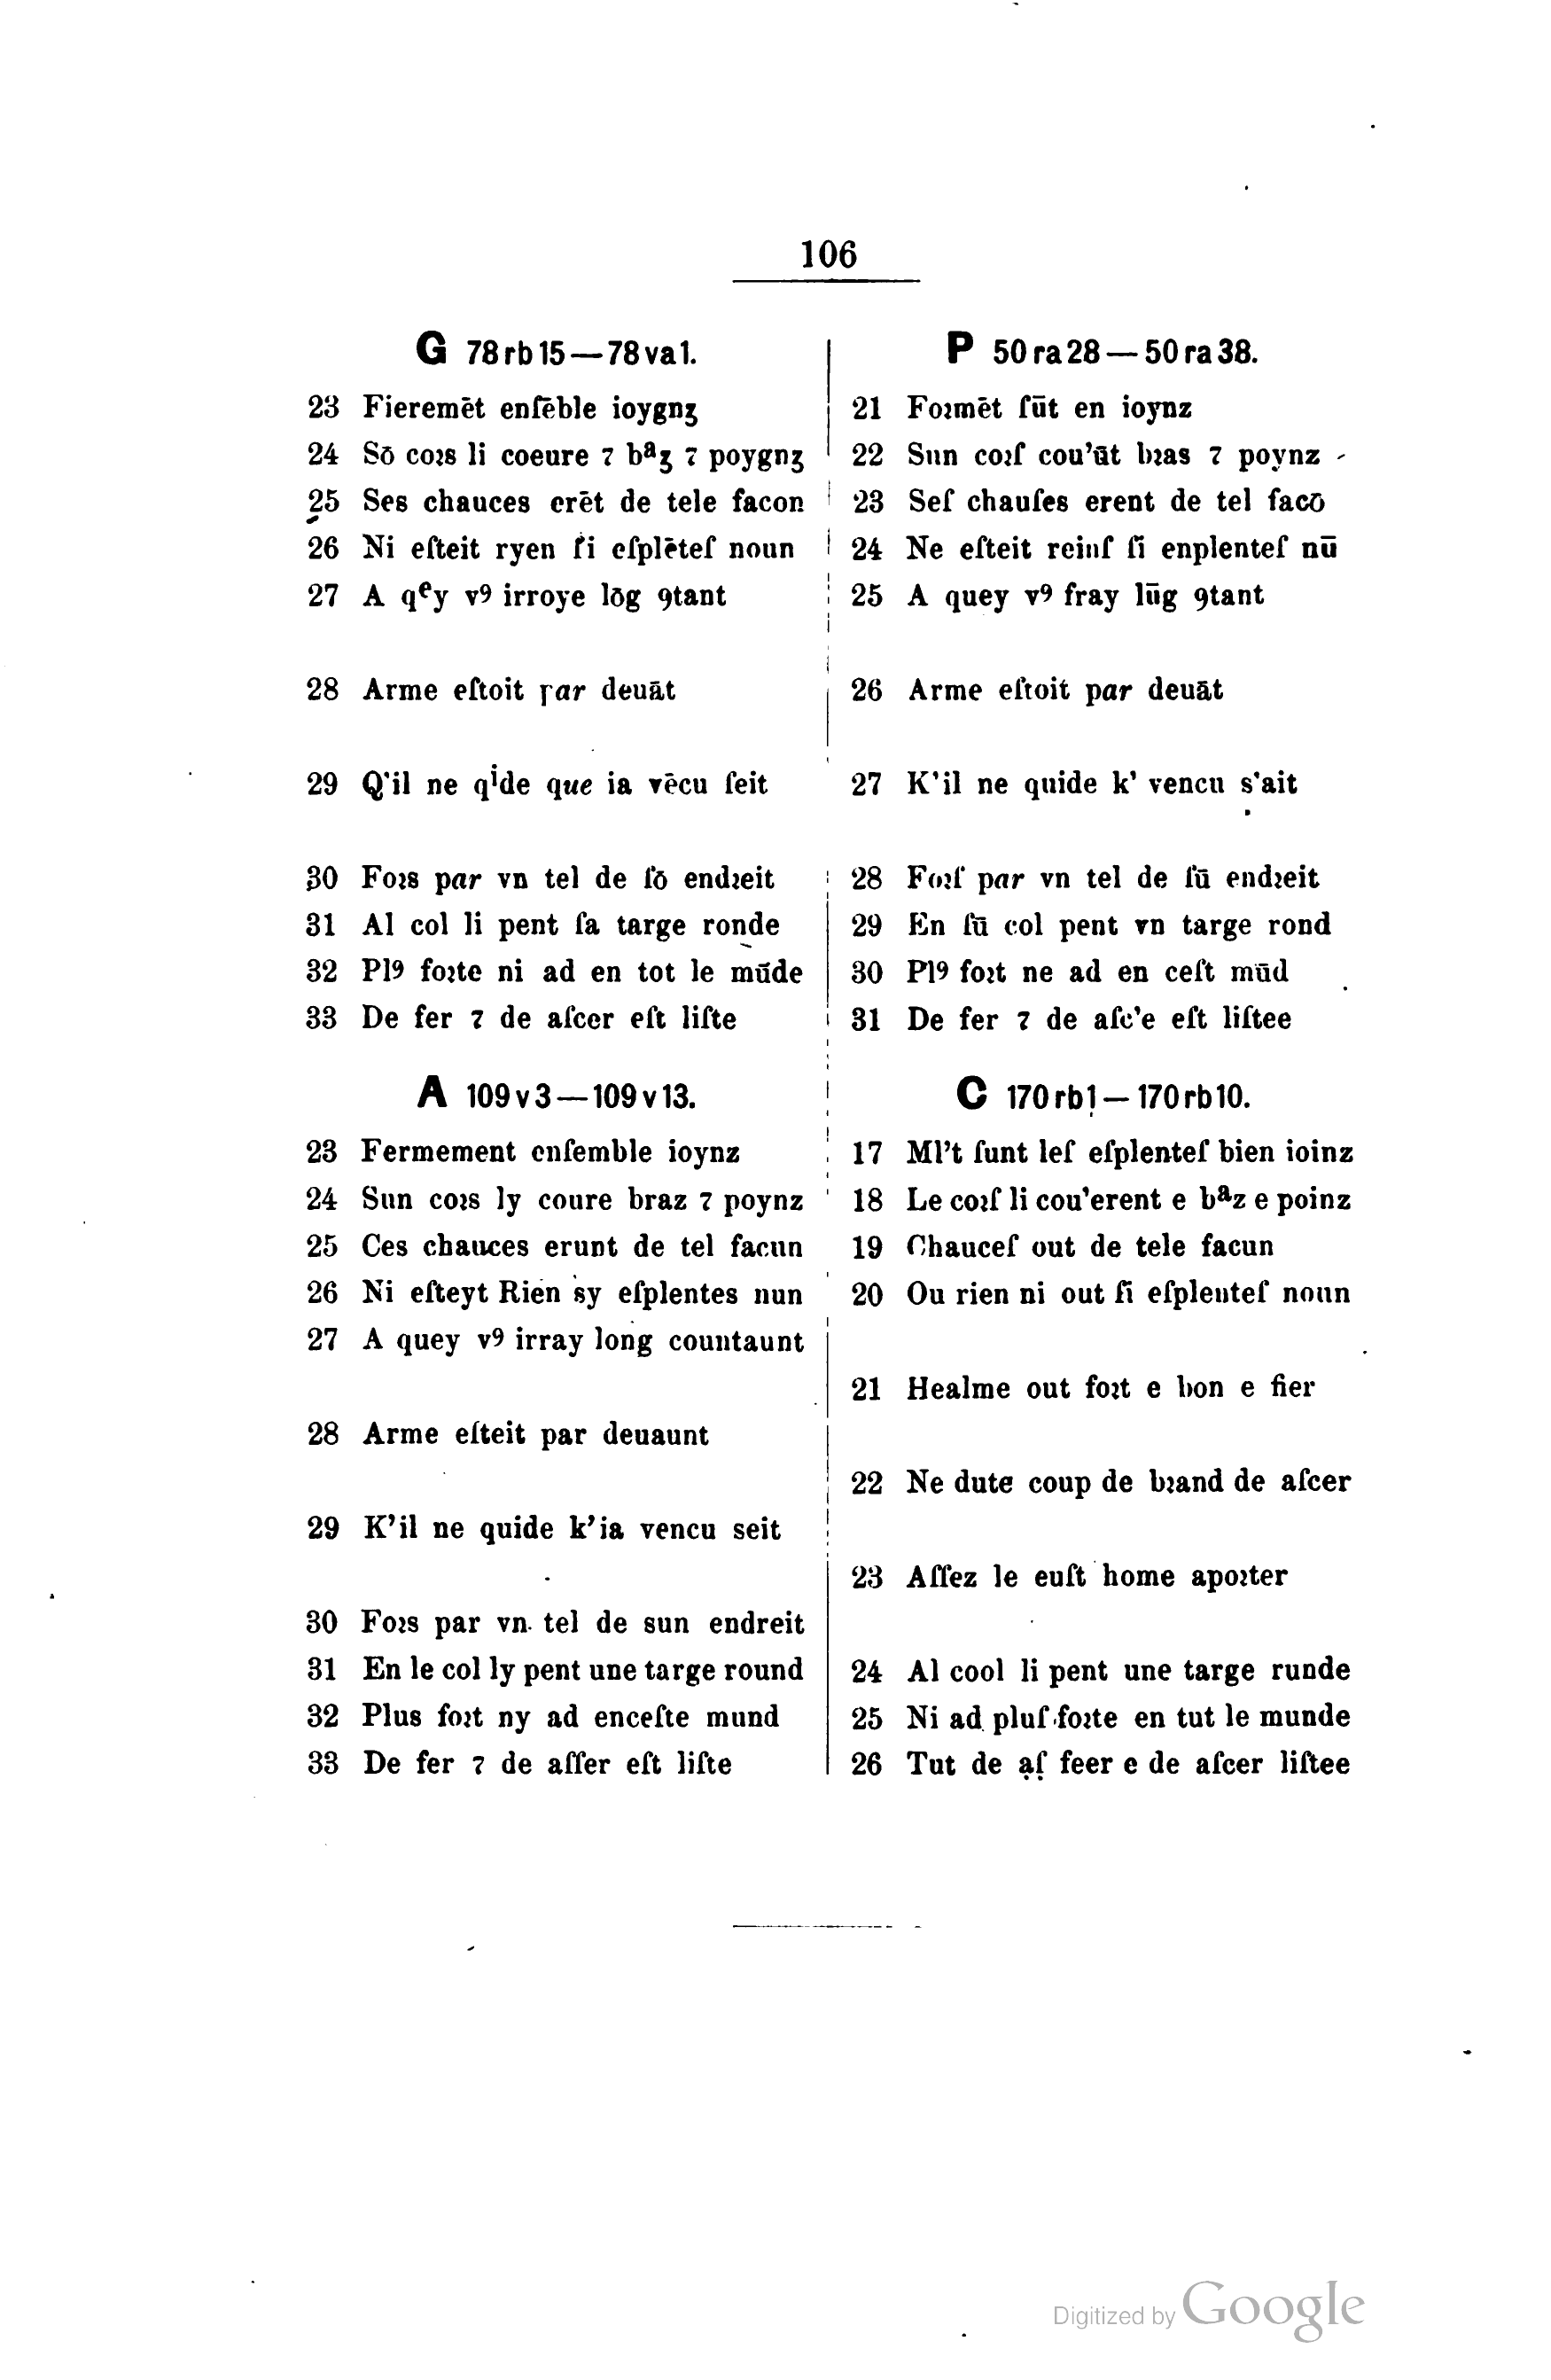 106
G 78rb15—78va1.
23 Fieremēt enſēble ioygnʒ
24 Sō coꝛs li coeure ⁊ bᵃʒ ⁊ poygnʒ
25 Ses chauces erēt de tele facon
26 Ni eſteit ryen ſi eſplēteſ noun
27 A qᵉy v⁹ irroye lōg ꝯtant
28 Arme eſtoit par deuāt
29 Q'il ne qⁱde que ia vēcu ſeit
30 Foꝛs par vn tel de ſō endꝛeit
31 Al col li pent ſa targe ronde
32 Pl⁹ foꝛte ni ad en tot le mūde
33 De fer ⁊ de aſcer eſt liſte
P 50ra28—50ra38.
21 Foꝛmēt ſūt en ioynz
22 Sun coꝛſ cou'ūt bꝛas ⁊ poynz
23 Seſ chauſes erent de tel facō
24 Ne eſteit reinſ ſi enplenteſ nū
25 A quey v⁹ fray lūg ꝯtant
26 Arme eſtoit par deuāt
27 K'il ne quide k' vencu s'ait
28 Foꝛſ par vn tel de ſū endꝛeit
29 En ſū col pent vn targe rond
30 Pl⁹ foꝛt ne ad en ceſt mūd
31 De fer ⁊ de aſc'e eſt liſtee
A 109v3—109v13.
23 Fermement enſemble ioynz
24 Sun coꝛs ly coure braz ⁊ poynz
25 Ces chauces erunt de tel facun
26 Ni eſteyt Rien sy eſplentes nun
27 A quey v⁹ irray long countaunt
28 Arme eſteit par deuaunt
29 K'il ne quide k'ia vencu seit
30 Foꝛs par vn tel de sun endreit
31 En le col ly pent une targe round
32 Plus foꝛt ny ad enceſte mund
33 De fer ⁊ de aſſer eſt liſte
C 170rb1—170rb10.
17 Ml't ſunt leſ eſplenteſ bien ioinz
18 Le coꝛſ li cou'erent e bᵃz e poinz
19 Chauceſ out de tele facun
20 Ou rien ni out ſi eſplenteſ noun
21 Healme out foꝛt e bon e fier
22 Ne dute coup de bꝛand de aſcer
23 Aſſez le euſt home apoꝛter
24 Al cool li pent une targe runde
25 Ni ad pluſ foꝛte en tut le munde
26 Tut de ạſ̣ feer e de aſcer liſtee
Digitized by Google